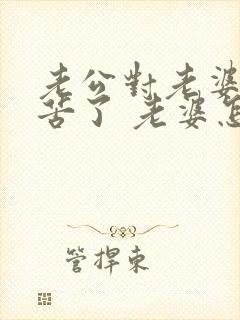 老公對老婆
苦了 老婆怎
管捍東